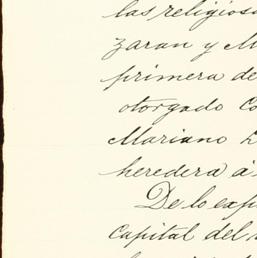 las religios
zaran y M
primera de
otorgado Co
Mariano
heredera á
De lo exp
capital del